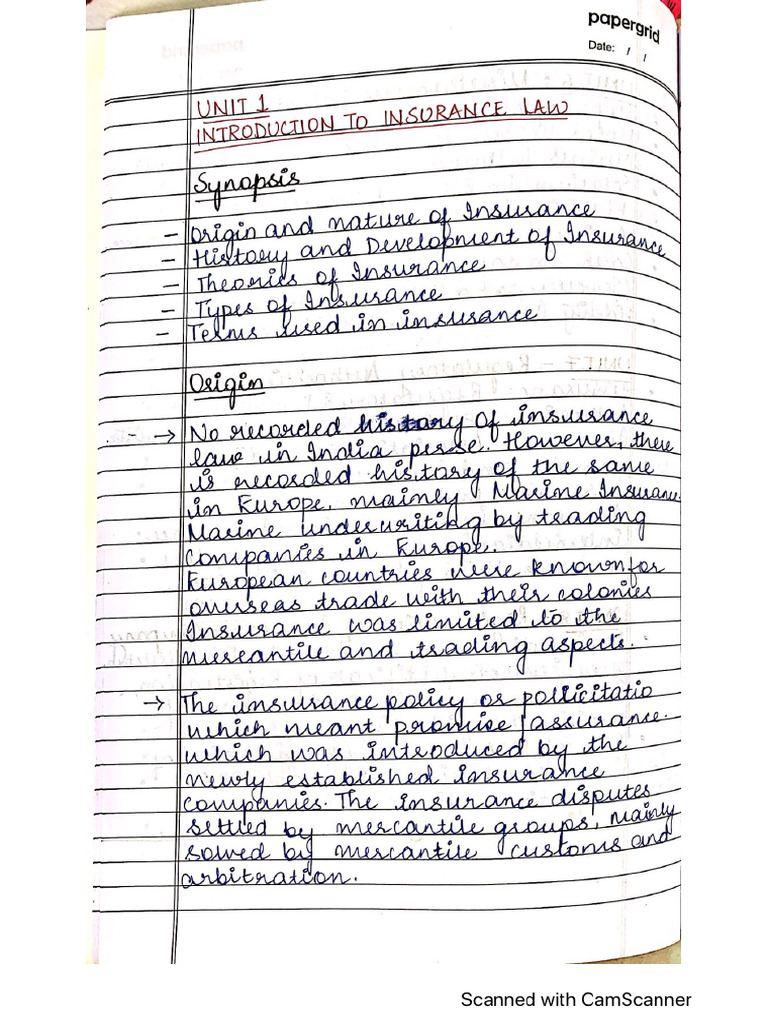 papergrid
Date: / /
UNIT 1
INTRODUCTION TO INSURANCE LAW
Synopsis
- Origin and nature of Insurance
- History and Development of Insurance
- Theories of Insurance
- Types of Insurance
- Terms used in insurance
Origin
→ No recorded history of insurance
law in India perse. However, there
is recorded history of the same
in Europe, mainly Marine Insuran
Marine underwriting by trading
companies in Europe.
European countries were known for
overseas trade with their colonies
Insurance was limited to the
mercantile and trading aspects.
→ The insurance policy or pollicitatio
which meant promise/assurance.
which was introduced by the
newly established insurance
companies. The insurance disputes
settled by mercantile groups, mainly
solved by mercantile customs and
arbitration.
Scanned with CamScanner